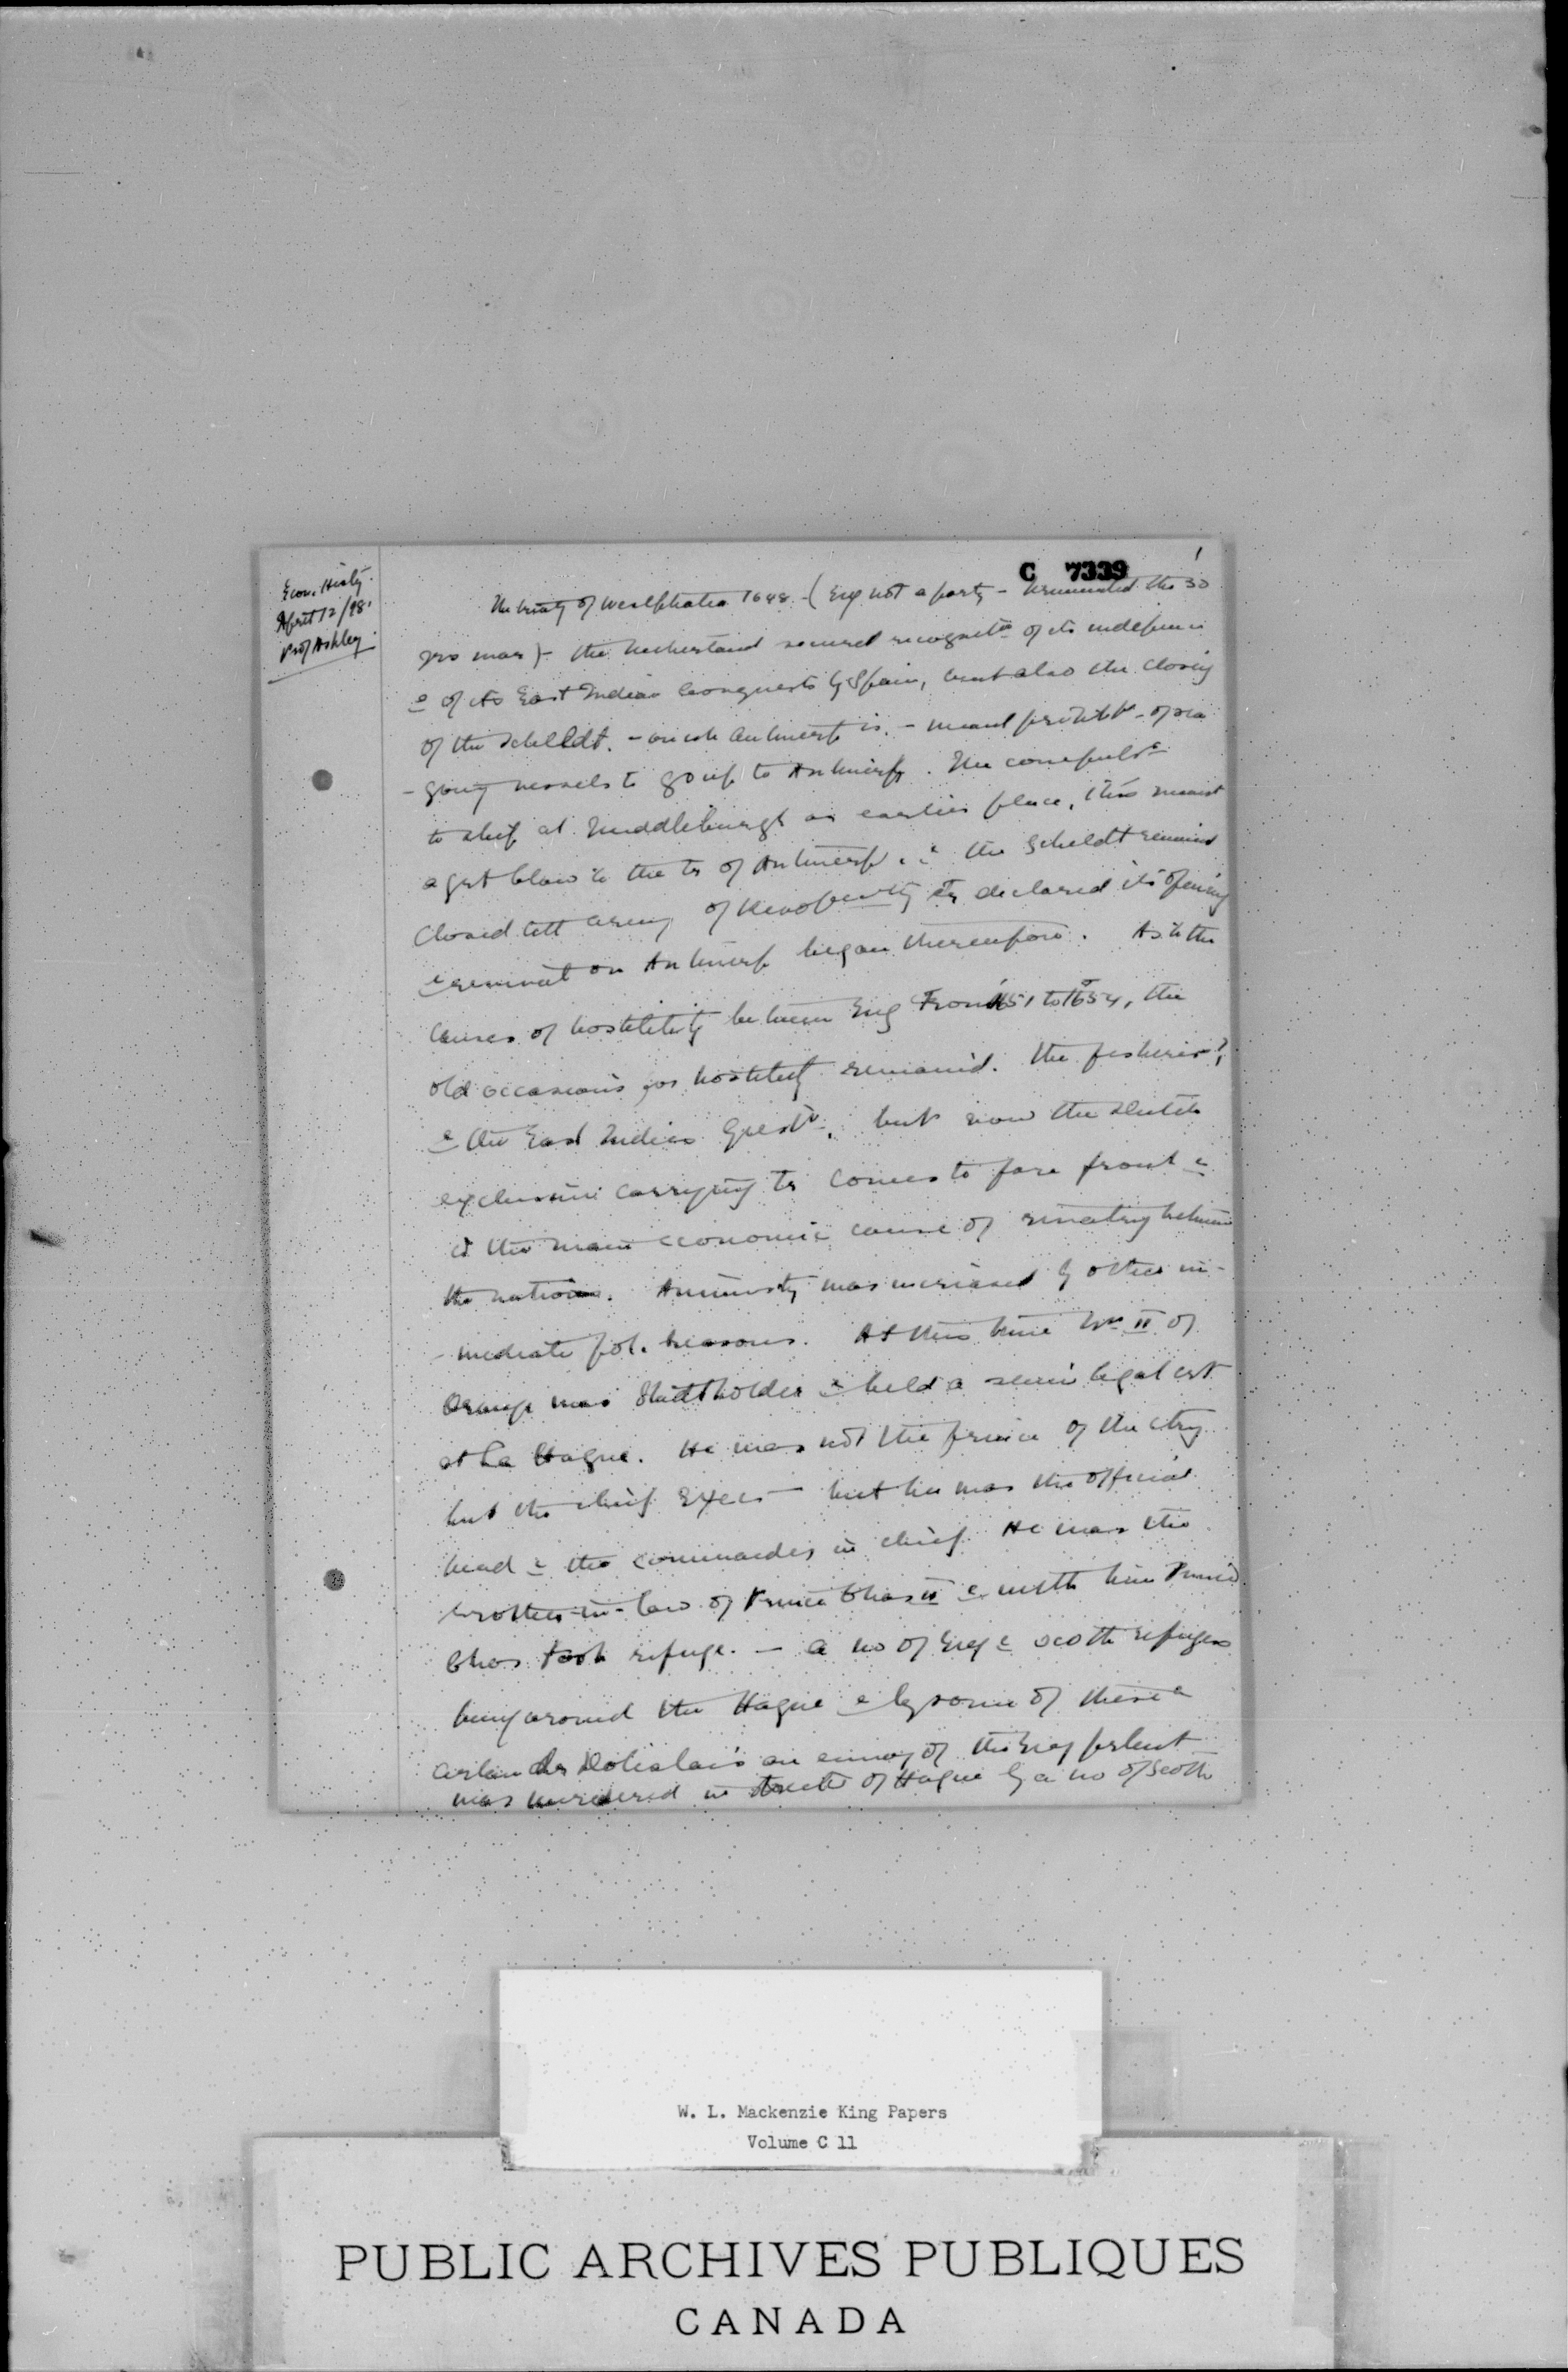 Econ. Histy.
April 12/98.
Prof Ashley.
C 7339
1
The treaty of Westphalia 1648 - (Eng not a party - terminated the 30
yrs war) - the Netherland secured recognitn of its independence
& of its East Indian Conquests by Spain, but also the closing
of the Scheldt. - on wh Antwerp is. - meant prohibtn of sea
- going vessels to go up to Antwerp. The compulsn
to ship at Middleburgh an earlier place, this meant
a grt blow to the tr of Antwerp. & the Scheldt remained
closed till army of declared its opening
& revival on Antwerp began therefrom. As to the
causes of hostility between Eng From 1651 to 1654, the
old occasions for hostility remained. the fisheries,
& the East Indies Questn. but now the Dutch
exclusive carrying tr comes to fore front &
is the main economic cause of rivalry between
the nations. Animosity was increased by other im-
- mediate pol. reasons. At this time Wm II of
Orange was Stadtholder & held a semi legal crt
at La Hague. He was not the prince of the ctry
but the chief Exec - but he was the official
head & the commander in chief. He was the
brother-in-law of Prince Chas II & with him Prince
Chas took refuge. - a no of Eng & Scotch refugees
being around the Hague & by some of these a
certain Dr Dorislaus an envoy of the Eng parlment
was murdered in streets of Hague by a no of Scotch
W. L. Mackenzie King Papers
Volume C 11
PUBLIC ARCHIVES PUBLIQUES
CANADA